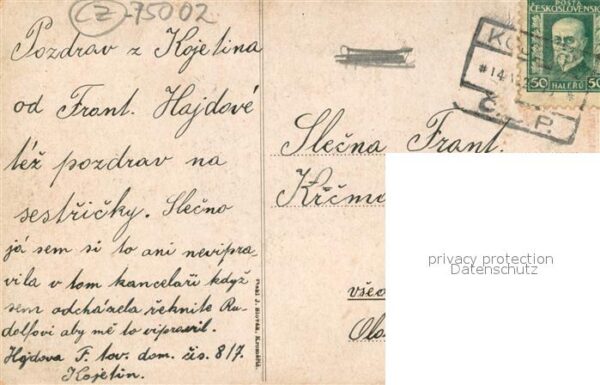 CZ-75002
Pozdrav z Kojetina
od Frant. Hajdové
též pozdrav na
sestřičky. Slečno
já sem si to ani nevipra-
vila v tom kanceláři když
sem odcházela řekněte Ru-
dolfovi aby mě to vipravil.
Hajdova F. tov. dom. čís. 817.
Kojetin.
J. Slovák, Kroměříž.
POŠTA
ČESKOSLOVENSKÁ
50 HALÉŘŮ 50
Slečna Frant.
Krčm
všeo
Olo
privacy protection
Datenschutz